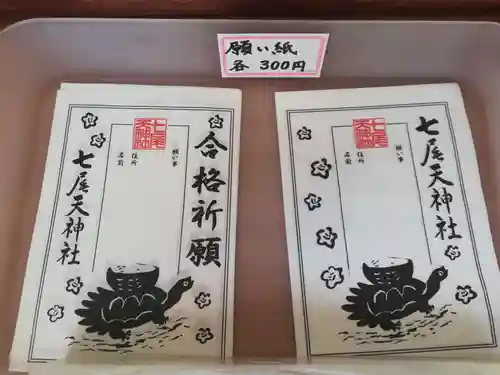 願い紙
各 300円
合格祈願
七尾天神
願い事
住所
名前
七尾天神社
七尾天神社
七尾天神
願い事
住所
名前